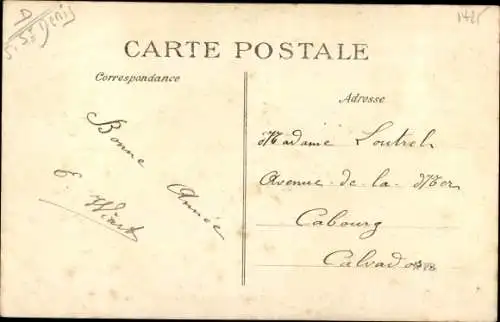 D
S. St Denis
1425
CARTE POSTALE
Correspondance
Adresse
Bonne Année
E. Wiart
Madame Loutrel
Avenue de la Mer
Cabourg
Calvados